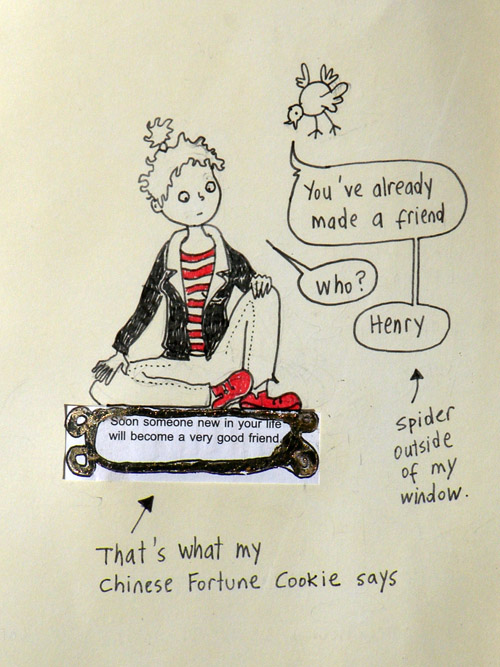 You've already
made a friend
who?
Henry
Spider
outside
of my
window.
Soon someone new in your life
will become a very good friend.
That's what my
Chinese Fortune Cookie says